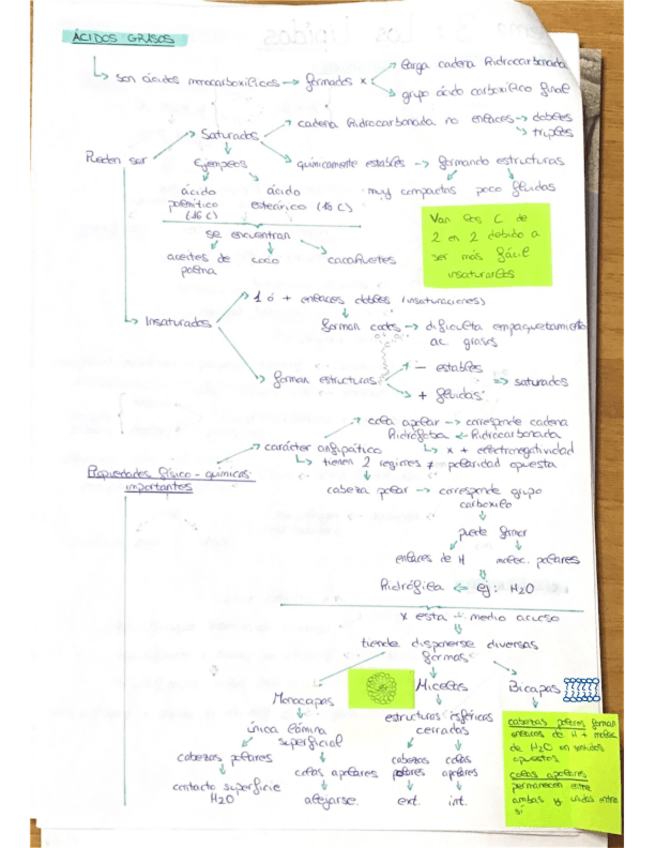 ÁCIDOS GRASOS
↳ son ácidos monocarboxílicos → formados x
larga cadena hidrocarbonada
grupo ácido carboxílico final
Pueden ser
Saturados
cadena hidrocarbonada no enlaces → dobles
triples
químicamente estables → formando estructuras
muy compactas poco fluidas
Ejemplos
ácido palmítico (16 C)
ácido esteárico (18 C)
se encuentran
aceites de palma
coco
cacahuetes
Van los C de
2 en 2 debido a
ser más fácil
insaturarlos
Insaturados
1 ó + enlaces dobles (insaturaciones)
forman codos → dificulta empaquetamiento
ac. grasos
forman estructuras
- estables
+ fluidas
⇒ saturados
Propiedades físico-químicas
importantes
carácter anfipático
↳ tienen 2 regiones ≠ polaridad opuesta
cola apolar → corresponde cadena
Hidrófoba ← Hidrocarbonada
↳ x + electronegatividad
cabeza polar → corresponde grupo
carboxilo
puede formar
enlaces de H
molec. polares
Hidrófila ⇐ ej: H2O
x esta - medio acuoso
tiende disponerse diversas
formas
Monocapas
única lámina
superficial
cabezas polares
contacto superficie
H2O
colas apolares
alejarse.
Micelas
estructuras esféricas
cerradas
cabezas
polares
ext.
colas
apolares
int.
Bicapas
cabezas polares forman
enlaces de H + molec
de H2O en sentidos
opuestos
colas apolares
permanecen entre
ambas y unidas entre
sí